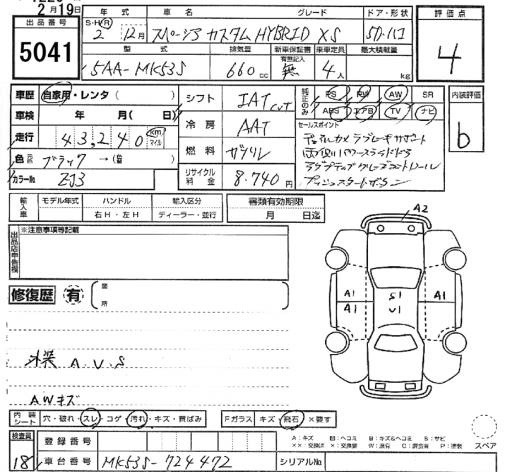 2月19日
出品番号
5041
年式 車名 グレード ドア・形状
S・H/R 2 12月 スペーシア カスタム HYBRID XS 5D.ハコ
型式 排気量 新車保証書 乗車定員 最大積載量
有無記入
5AA-MK53S 660 cc 無 4人 kg
評価点
4
車歴 自家用・レンタ( )
車検 年 月(日)
走行 43,240 km マイル
色 ブラック →( )
カラーNo ZJ3
シフト IAT CVT
冷房 AAT
燃料 ガソリン
リサイクル料金 8.740円
純正のみ
PS PW AW SR
ABS エアB TV ナビ
セールスポイント
プッシュスタートボタン
内装評価
b
輸入車
モデル年式 ハンドル 輸入区分
右H・左H ディーラー・並行
書類有効期限
月 日迄
出品店申告欄
※注意事項等記載
修復歴 有 箇所
外装 A.U.S
AWキズ
A2
A1 A1 S1 U1 A1
内装シート 穴・破れ・スレ・コゲ・汚れ・キズ・黄ばみ
Fガラス キズ・飛石 ×要す
検査員
18
登録番号
車台番号 MK53S-724472
シリアルNo
A:キズ
スペア